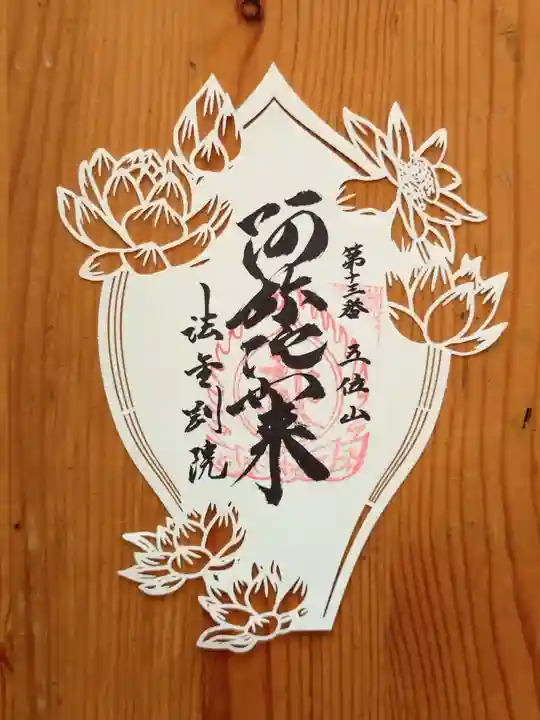 第十三番 五位山
阿弥陀如来
法金剛院